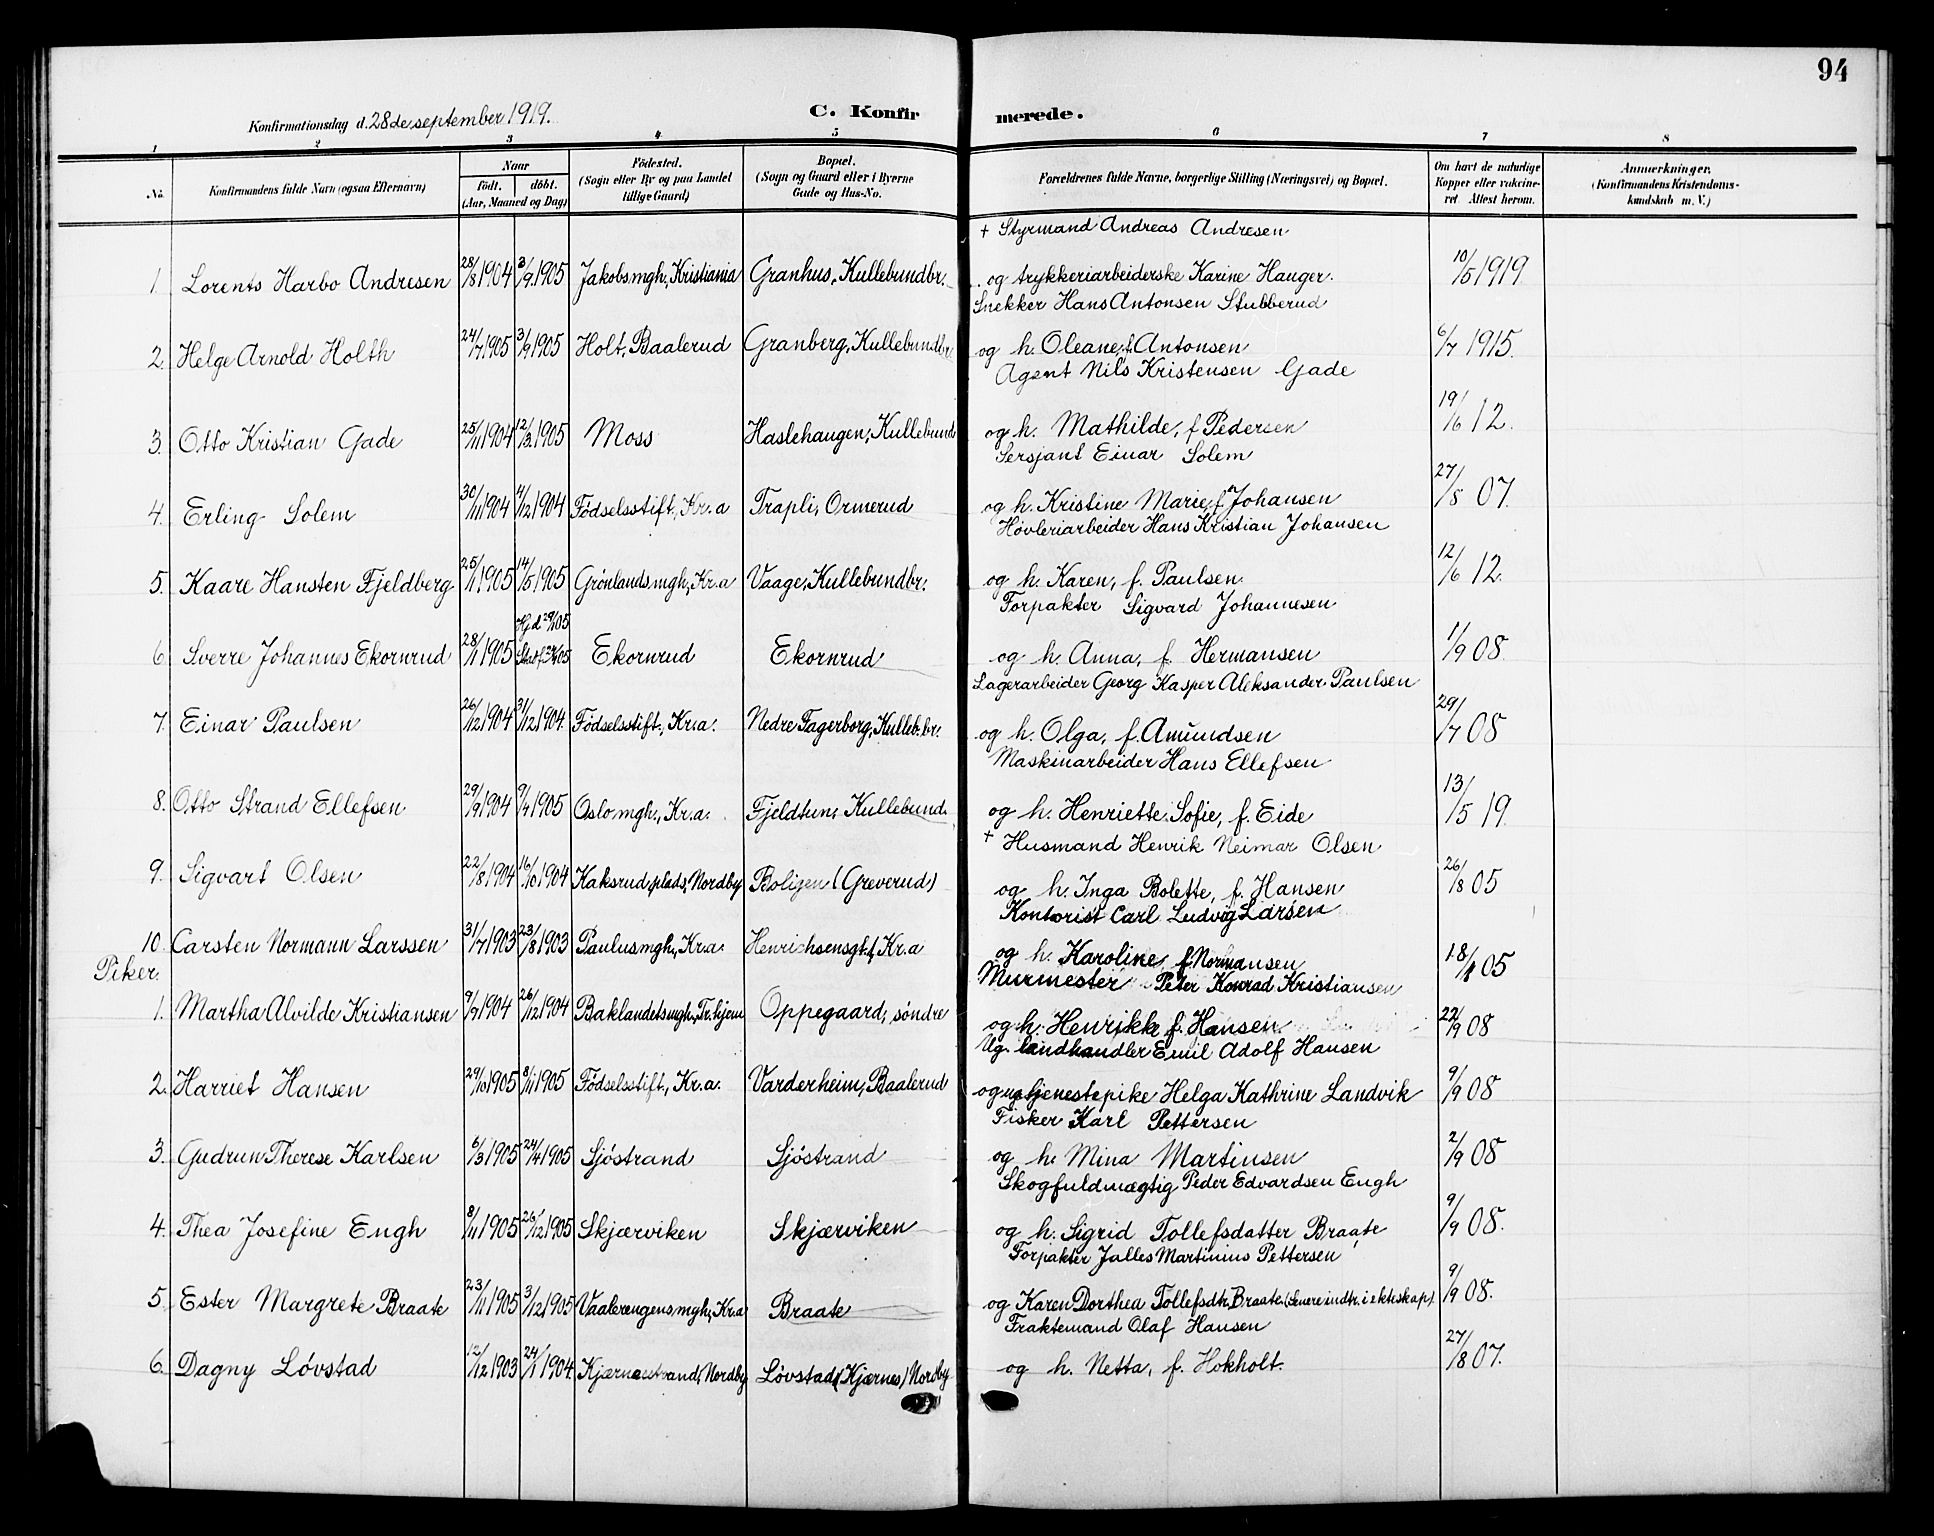 94
Konfirmationsdag d. 28de september 1919. C. Konfirmerede.
1 2 3 4 5 6 7 8
No. Konfirmandens fulde Navn (ogsaa Efternavn) Naar födt. döbt. (Aar, Maaned og Dag) Födested. (Sogn eller By og paa Landet tillige Gaard) Bopæl. (Sogn og Gaard eller i Byerne Gade og Hus-No. Forældrenes fulde Navne, borgerlige Stilling (Næringsvei) og Bopæl. Om havt de naturlige Kopper eller vakcineret Attest herom. Anmærkninger. (Konfirmandens Kristendomskundskab m. V.)
+ Styrmand Andreas Andresen
1. Lorents Harbo Andresen 28/8 1904 3/9 1905 Jakobs mgh., Kristiania Granhus, Kullebundbr. og trykkeriarbeiderske Karine Hauger. 10/5 1919
Snekker Hans Antonsen Stubberud
2. Helge Arnold Holth 24/7 1905 3/9 1905 Holt, Baalerud Granberg, Kullebundbr. og h. Oleane, f. Antonsen 6/7 1915.
Agent Nils Kristensen Gade
3. Otto Kristian Gade 25/11 1904 12/3 1905 Moss Haslehaugen, Kullebund og h. Mathilde, f. Pedersen 19/6 12.
Sersjant Einar Solem
4. Erling Solem 30/11 1904 4/12 1904 Födselsstift., Kr.a Trapli, Ormerud og h. Kristine Marie, f. Johansen 27/8 07.
Høvleriarbeider Hans Kristian Johansen
5. Kaare Hansten Fjeldberg 25/1 1905 14/5 1905 Grønlands mgh., Kr.a Vaage, Kullebundbr. og h. Karen, f. Paulsen. 12/6 12.
Forpakter Sigvard Johannesen
6. Sverre Johannes Ekornrud 28/1 1905 Hj.d. Ekornrud Ekornrud og h. Anna, f. Hermansen 1/9 08.
Lagerarbeider Georg Kasper Aleksander Paulsen
7. Einar Paulsen 26/12 1904 31/12 1904. Födselsstift., Kr.a. Nedre Fagerborg, Kulleb.br. og h. Olga, f. Amundsen 29/7 08
Maskinarbeider Hans Ellefsen
8. Otto Strand Ellefsen 29/9 1904 9/4 1905 Oslo mgh., Kr.a. Fjeldtun, Kullebund. og h. Henriette Sofie, f. Eide 13/5 19.
+ Husmand Henrik Neimar Olsen
9. Sigvart Olsen 22/8 1904 16/10 1904 Kaksrud plads, Nordby Boligen (Greverud) og h. Inga Bolette, f. Hansen 26/8 05
Kontorist Carl Ludvig Larsen
10. Carsten Normann Larssen 31/7 1903 23/8 1903 Paulus mgh., Kr.a. Henrichsensgt. 1, Kr.a og h. Karoline, f. Normansen 05
Piker.
Murmester Peter Konrad Kristiansen
1. Martha Alvilde Kristiansen 9/7 1904 26/12 1904 Baklandets mgh., Tr.hjem Oppegaard, søndre og h. Henrikke f. Hansen. 22/9 08
Ug. landhandler Emil Adolf Hansen
2. Harriet Hansen 29/10 1905 8/11 1905 Födselsstift., Kr.a. Varderheim, Baalerud og ug. tjenestepike Helga Kathrine Landvik 9/9 08
Fisker Karl Pettersen
3. Gudrun Therese Karlsen 6/3 1905 24/4 1905 Sjöstrand Sjöstrand og h. Mina Martinsen 2/9 08
Skogfuldmægtig Peder Edvardsen Engh
4. Thea Josefine Engh 8/11 1905 26/12 1905 Skjærviken Skjærviken og h. Sigrid Tollefsdatter Braate 9/9 08.
Forpakter Jalles Martinius Pettersen
5. Ester Margrete Braate 23/11 1905 3/12 1905 Vaalerengens mgh., Kr.a Braate og Karen Dorthea Tollefsdtr. Braate. (Senere indtr. i ekteskap). 9/9 08.
Fraktemand Olaf Hansen
6. Dagny Løvstad 12/12 1903 24/1 1904. Kjærnesstrand, Nordby Løvstad (Kjærnes) Nordby og h. Netta, f. Hokholt. 27/8 07.